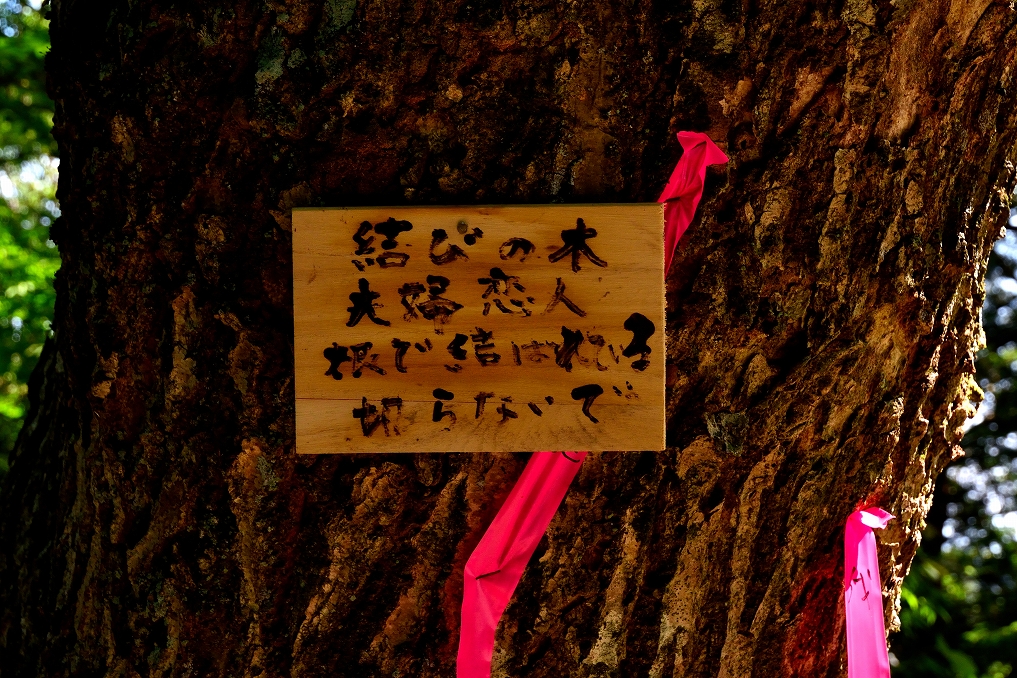 結びの木
夫婦 恋人
根で結ばれている
切らないで